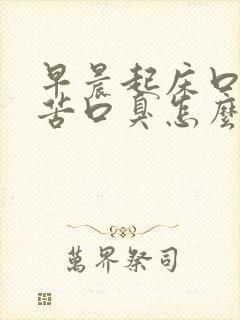 早晨起床口
苦口臭怎麼
萬界祭司